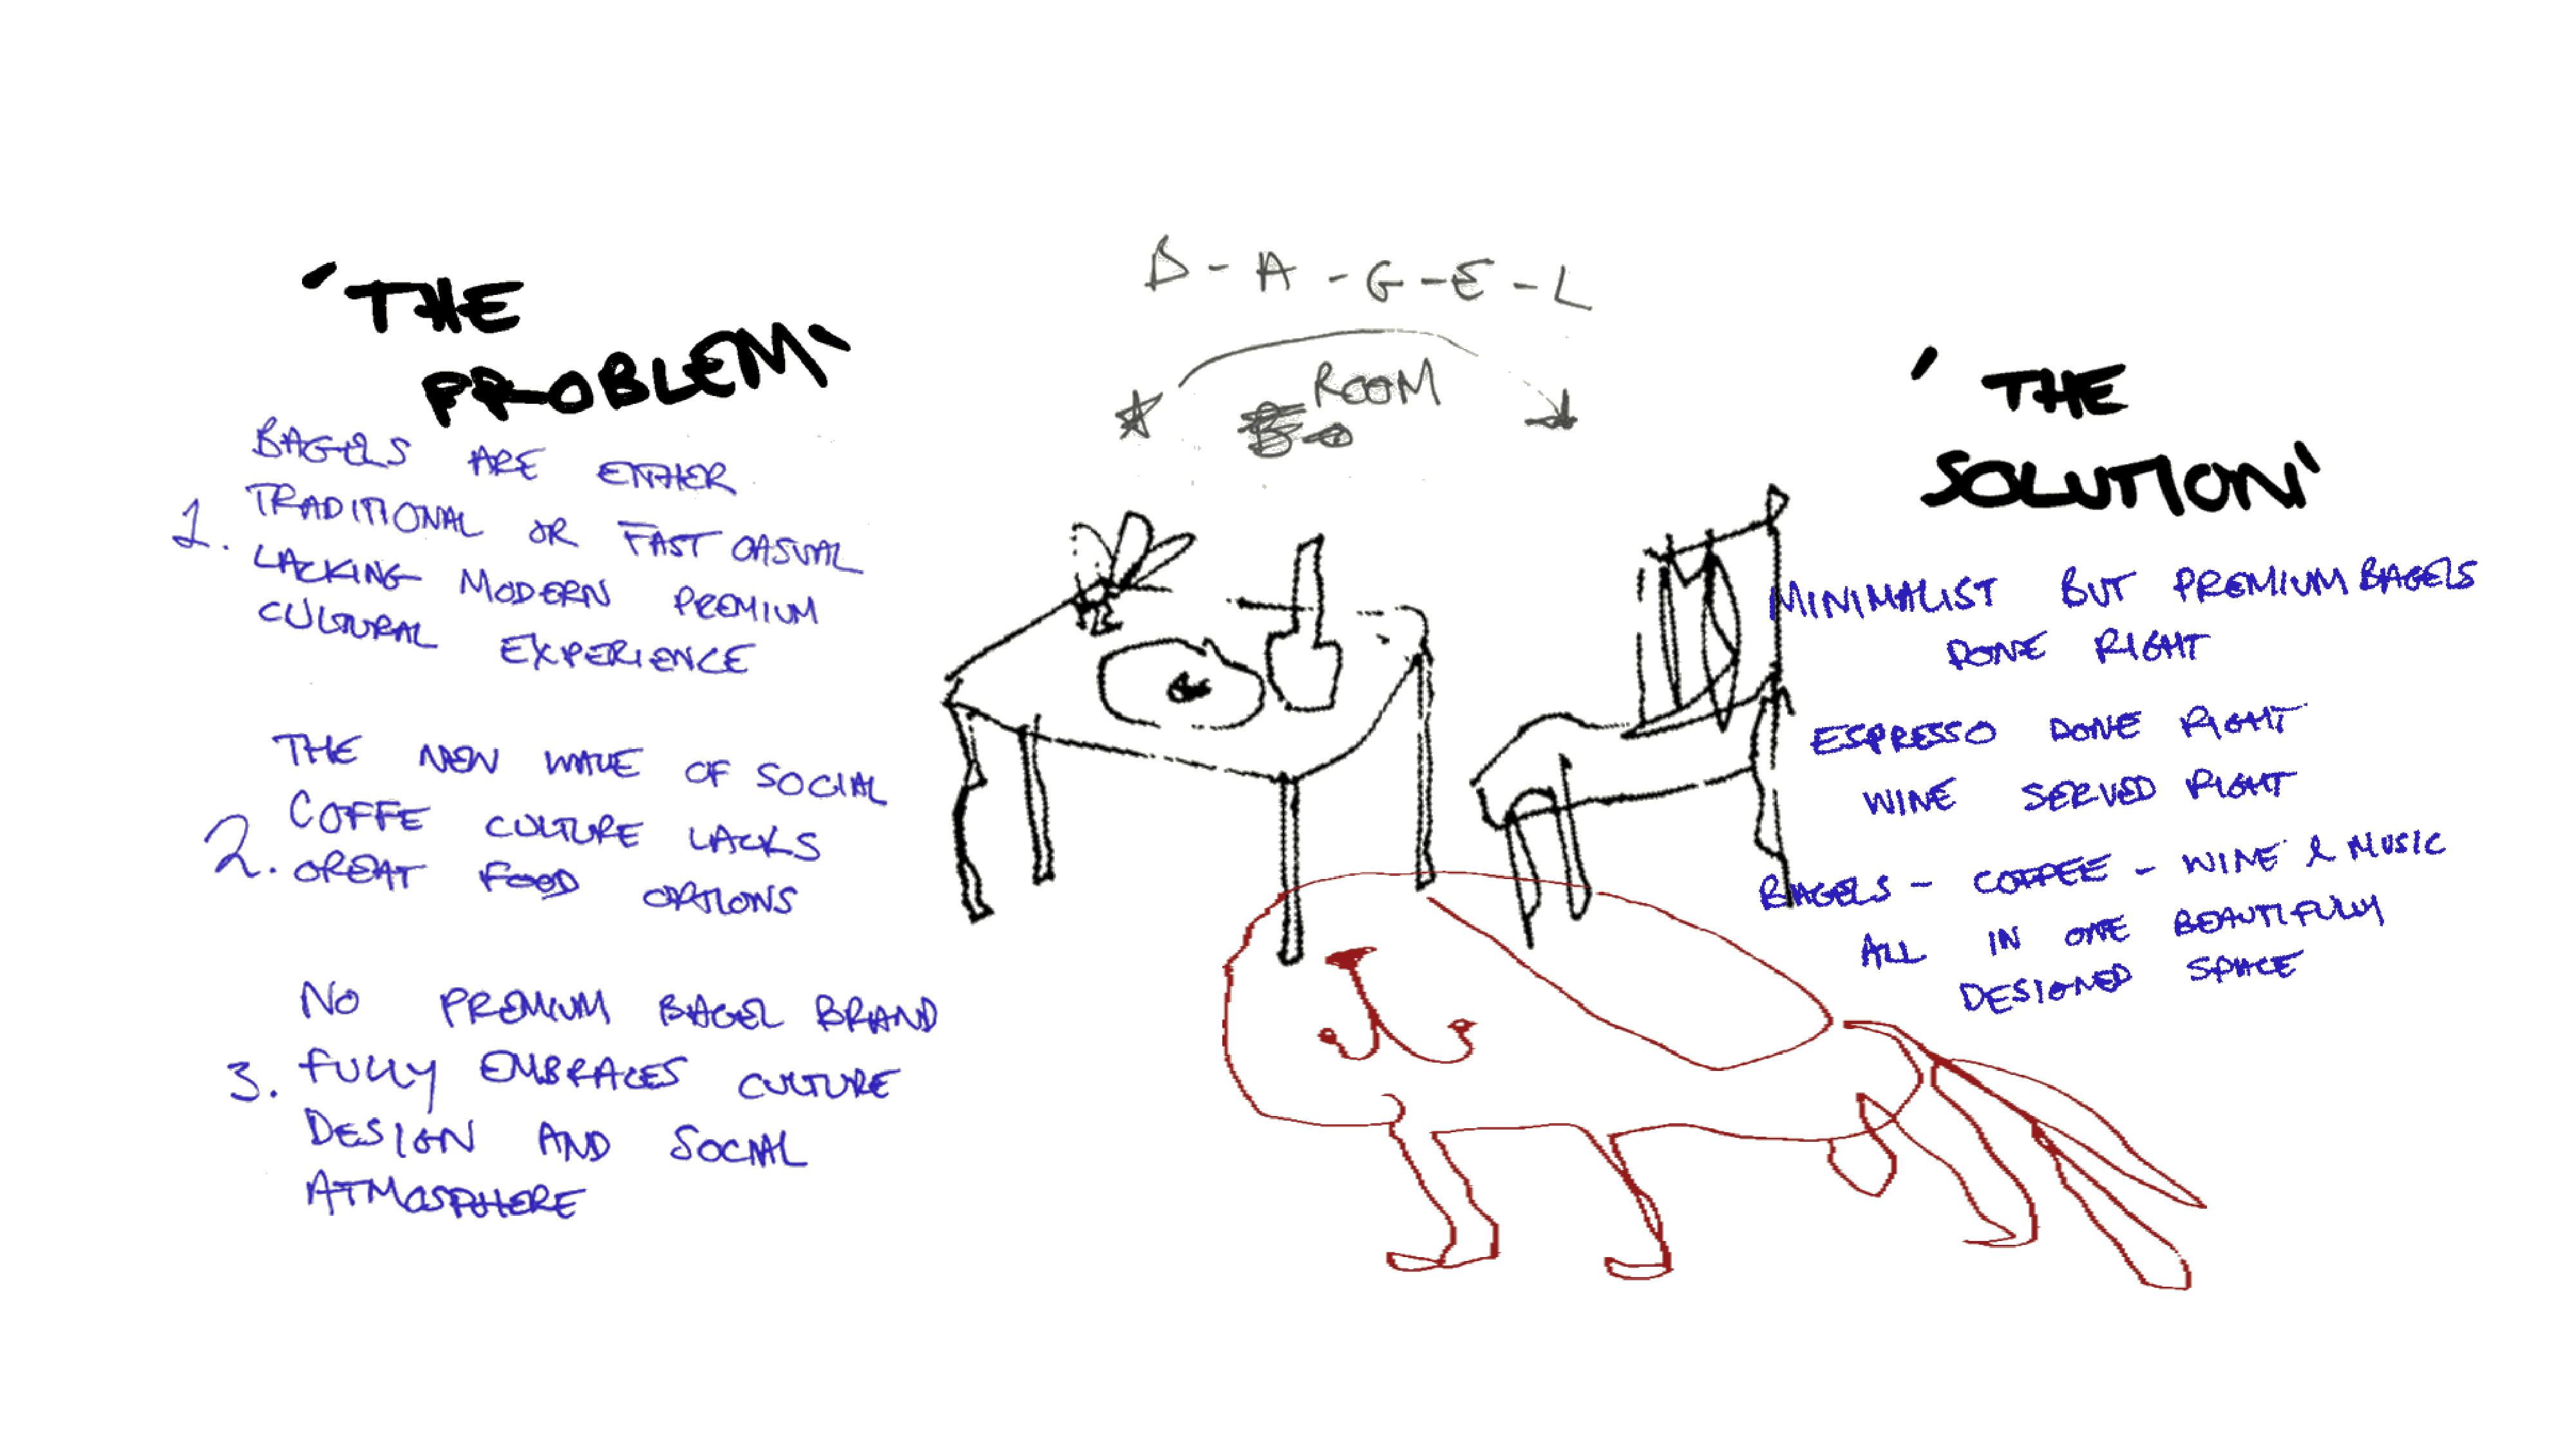 B-A-G-E-L
ROOM
'THE
PROBLEM'
BAGELS ARE EITHER
1. TRADITIONAL OR FAST CASUAL
LACKING MODERN PREMIUM
CULTURAL EXPERIENCE
THE NEW WAVE OF SOCIAL
COFFE CULTURE LACKS
2. GREAT FOOD OPTIONS
NO PREMIUM BAGEL BRAND
3. FULLY EMBRACES CULTURE
DESIGN AND SOCIAL
ATMOSPHERE
'THE
SOLUTION'
MINIMALIST BUT PREMIUM BAGELS
DONE RIGHT
ESPRESSO DONE RIGHT
WINE SERVED RIGHT
BAGELS - COFFEE - WINE & MUSIC
ALL IN ONE BEAUTIFULLY
DESIGNED SPACE